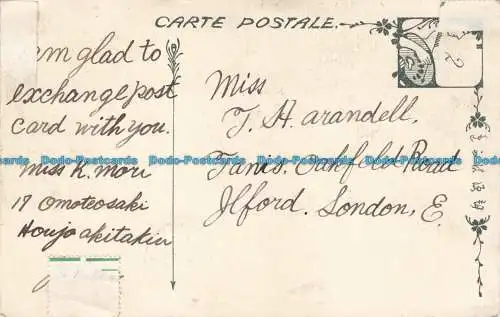 CARTE POSTALE.
em glad to
exchange post
card with you.
Miss K. Mori
17 Omoteosaki
Honjo akitakin
Miss
T. H. arandell,
Tanis. Oakfield Road
Ilford. London, E.
Dodo-Postcards Dodo-Postcards Dodo-Postcards Dodo-Postcards Dodo-Postcards